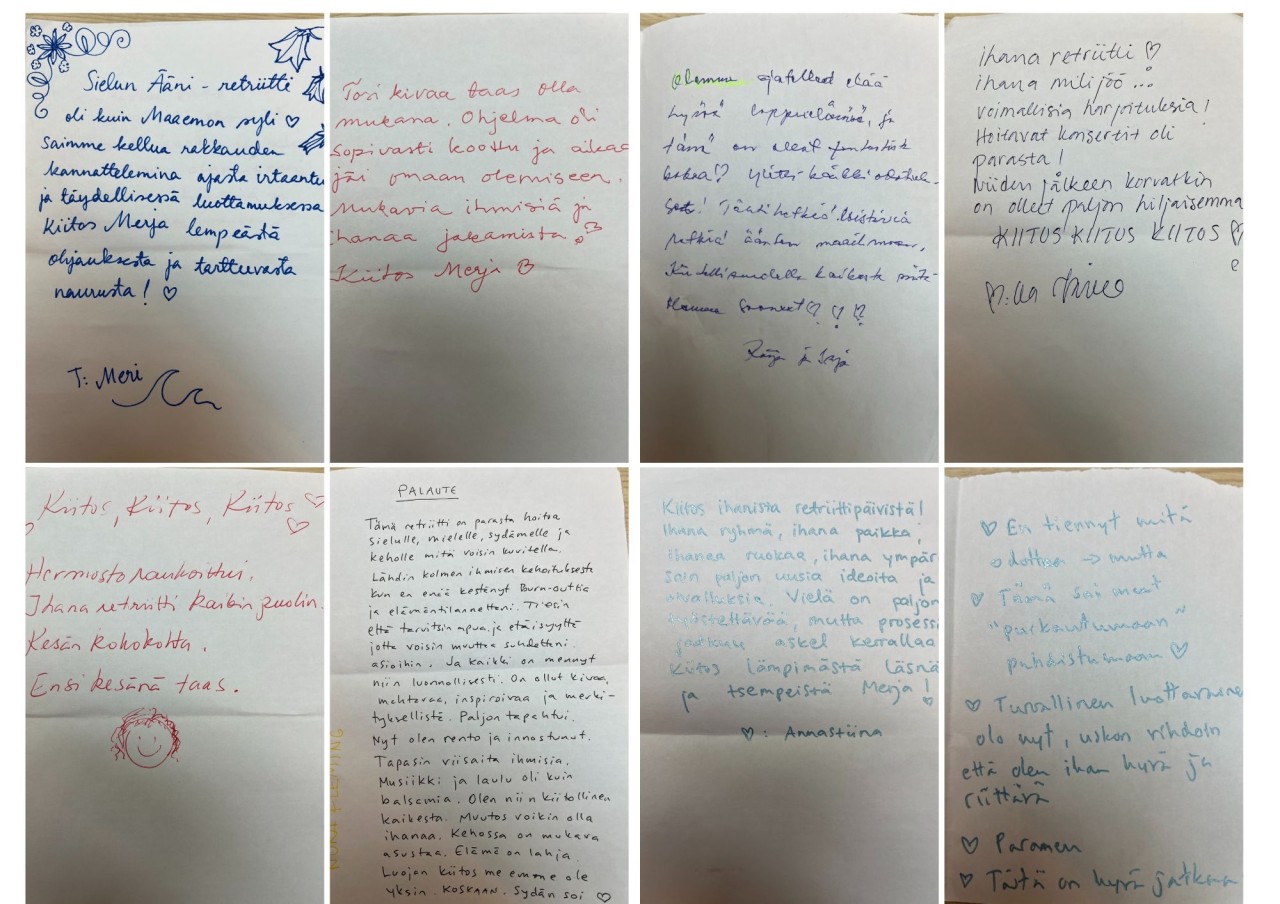 Sielun Ääni - retriitti
oli kuin Maaemon syli ♡
Saimme kellua rakkauden
kannattelemina ajasta irtaantu
ja täydellisessä luottamuksessa
Kiitos Merja lempeästä
ohjauksesta ja tarttuvasta
naurusta! ♡
T: Meri
Tosi kivaa taas olla
mukana. Ohjelma oli
sopivasti koottu ja aikaa
jäi omaan olemiseen.
Mukavia ihmisiä ja
ihanaa jakamista.
Kiitos Merja ♡
Olemme ajatelleet elää
hyvää loppuelämää, ja
tämä on ollut
kokoa!? kaikki
! Tätä hetkeä!
retkiä äänten maailmaan,
kaikesta
saaneet ♡ ♡ ♡
ja
ihana retriitti ♡
ihana miljöö...
voimallisia harjoituksia!
Hoitavat konsertit oli
parasta!
Niiden jälkeen korvatkin
on olleet paljon hiljaisemma
KIITOS KIITOS KIITOS ♡
Kiitos, Kiitos, Kiitos ♡
♡
Hermosto rauhoittui.
Ihana retriitti kaikin puolin.
Kesän kohokohta.
Ensi kesänä taas.
PALAUTE
Tämä retriitti on parasta hoitoa
sielulle, mielelle, sydämelle ja
keholle mitä voisin kuvitella.
Lähdin kolmen ihmisen kehoituksesta
kun en enää kestänyt Burn-outtia
ja elämäntilannettani. Tiesin
että tarvitsin apua ja etäisyyttä
jotta voisin muuttaa suhdettani
asioihin. Ja kaikki on mennyt
niin luonnollisesti. On ollut kivaa,
mahtavaa, inspiroivaa ja merki-
tyksellistä. Paljon tapahtui.
Nyt olen rento ja innostunut.
Tapasin viisaita ihmisiä.
Musiikki ja laulu oli kuin
balsamia. Olen niin kiitollinen
kaikesta. Muutos voikin olla
ihanaa. Kehossa on mukava
asustaa. Elämä on lahja.
Luojan kiitos me emme ole
yksin. KOSKAAN. Sydän soi ♡
Kiitos ihanista retriittipäivistä!
Ihana ryhmä, ihana paikka,
ihanaa ruokaa, ihana ympär
Sain paljon uusia ideoita ja
oivalluksia. Vielä on paljon
työstettävää, mutta prosessi
jatkuu askel kerrallaa
Kiitos lämpimästä läsnä
ja tsempeistä Merja! ♡
♡: Annastiina
♡ En tiennyt mitä
odottaa -> mutta
♡ Tämä sai meat
"purkautumaan"
puhdistumaan ♡
♡ Turvallinen luottavaine
olo nyt, uskon vihdoin
että olen ihan hyvä ja
riittävä
♡ Paranen
♡ Tästä on hyvä jatkaa